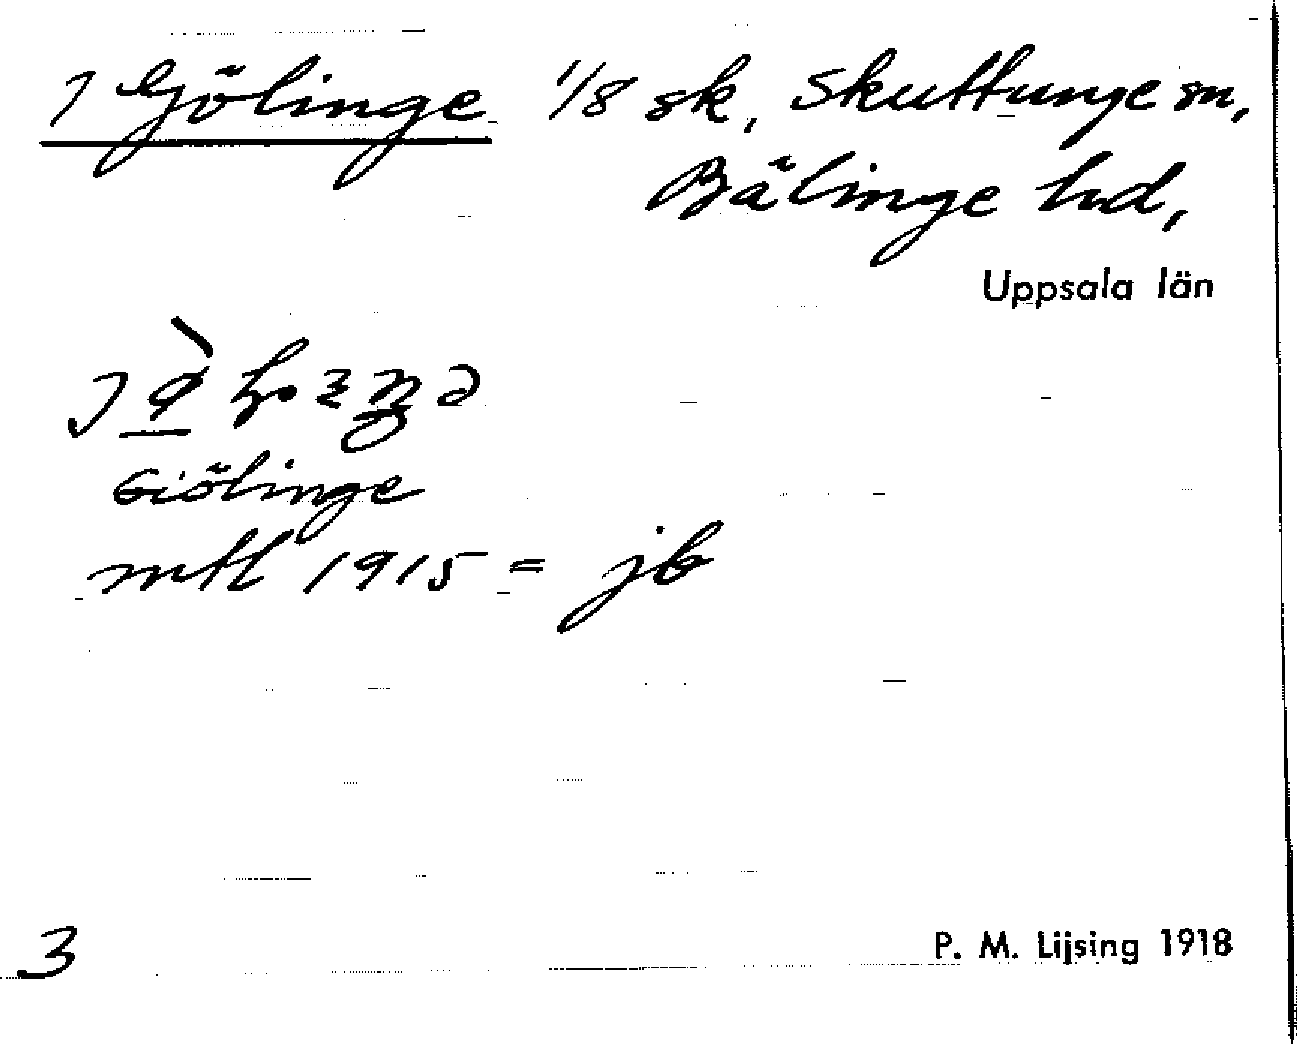 1 Gölinge 1/8 sk, Skuttunge sn,
Bälinge hd,
Uppsala län
Giölinge
mtl 1915 = jb
3
P. M. Lijsing 1918